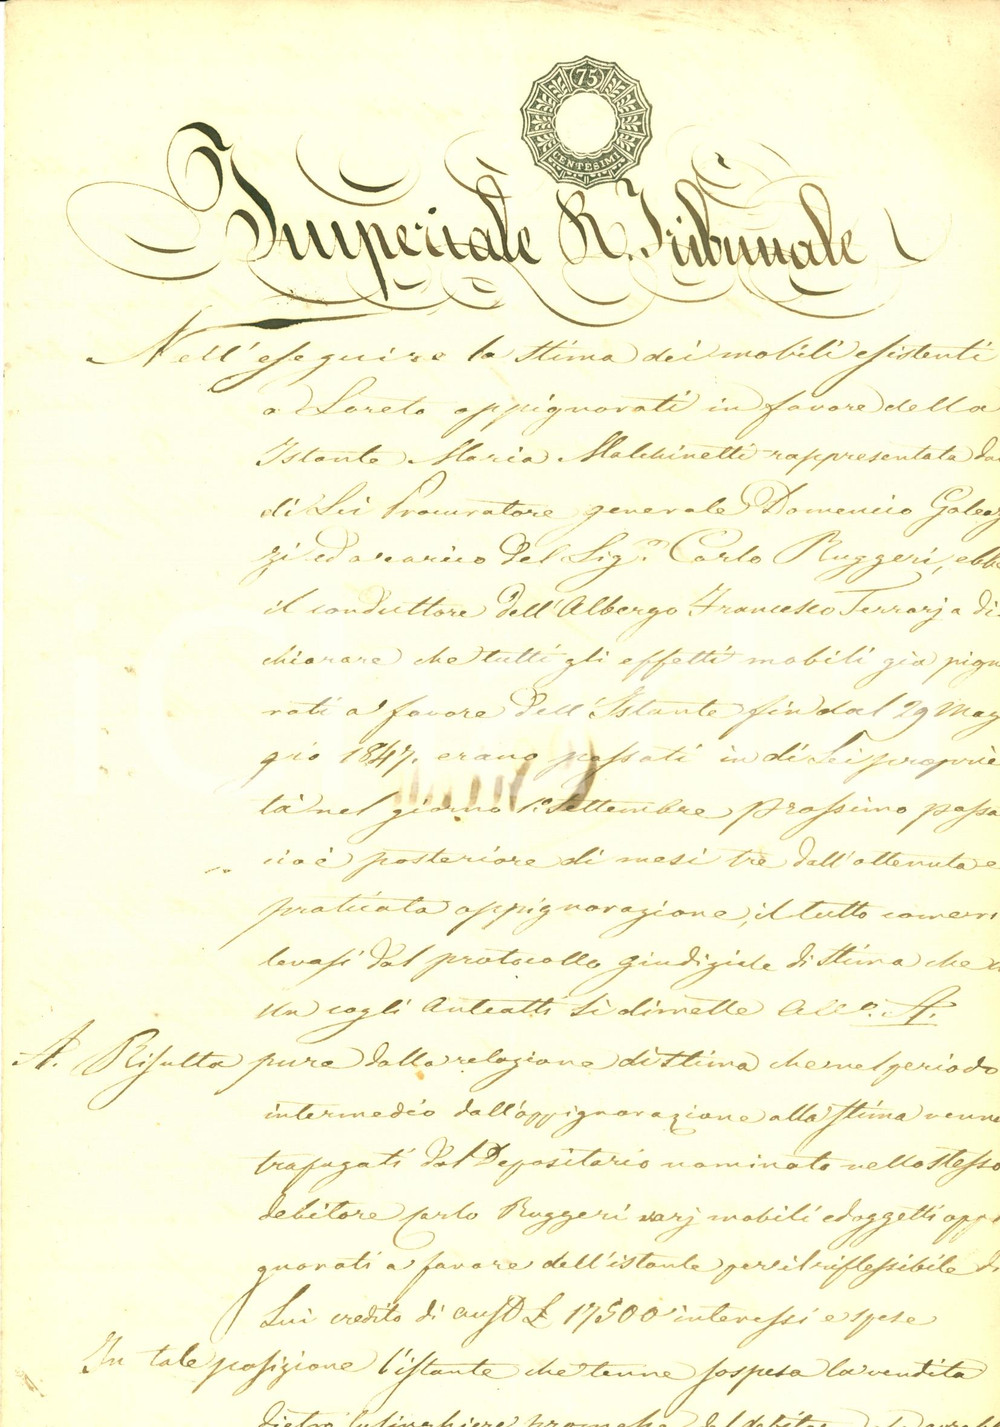 75
CENTESIMI
Imperiale R. Tribunale
Nell'eseguire la stima dei mobili esistenti
a Loreto oppignorati in favore della
Istante Maria Malchinetti rappresentata da
di Lei Procuratore generale Domenico Galeaz
zi ed a carico del Sig.r Carlo Ruggeri, ebbe
il conduttore dell'Albergo Francesco Terrarj a di-
chiarare che tutti gli effetti mobili già pign
rati a favore dell'Istante fin dal 29 Mag
gio 1847. erano passati in di Lei proprie
tà nel giorno 1.o Settembre prossimo passa
cioè posteriore di mesi tre dall'ottenuta e
praticata oppignorazione, il tutto come ri
levasi dal protocollo giudiziale di stima che
un cogli Antiatti si dimette All.o A.
A. Risulta pure dalla relazione di stima che nel periodo
intermedio dall'oppignorazione alla stima venne
trafugati dal Depositario nominato nello stesso
debitore Carlo Ruggeri varj mobili ed oggetti opp
gnorati a favore dell'istante per il riflessibile di
Lui credito di aust. £ 17500 interessi e spese
In tale posizione l'istante che tenne sospesa la vendita
dietro lusinghiere promesse del debitore